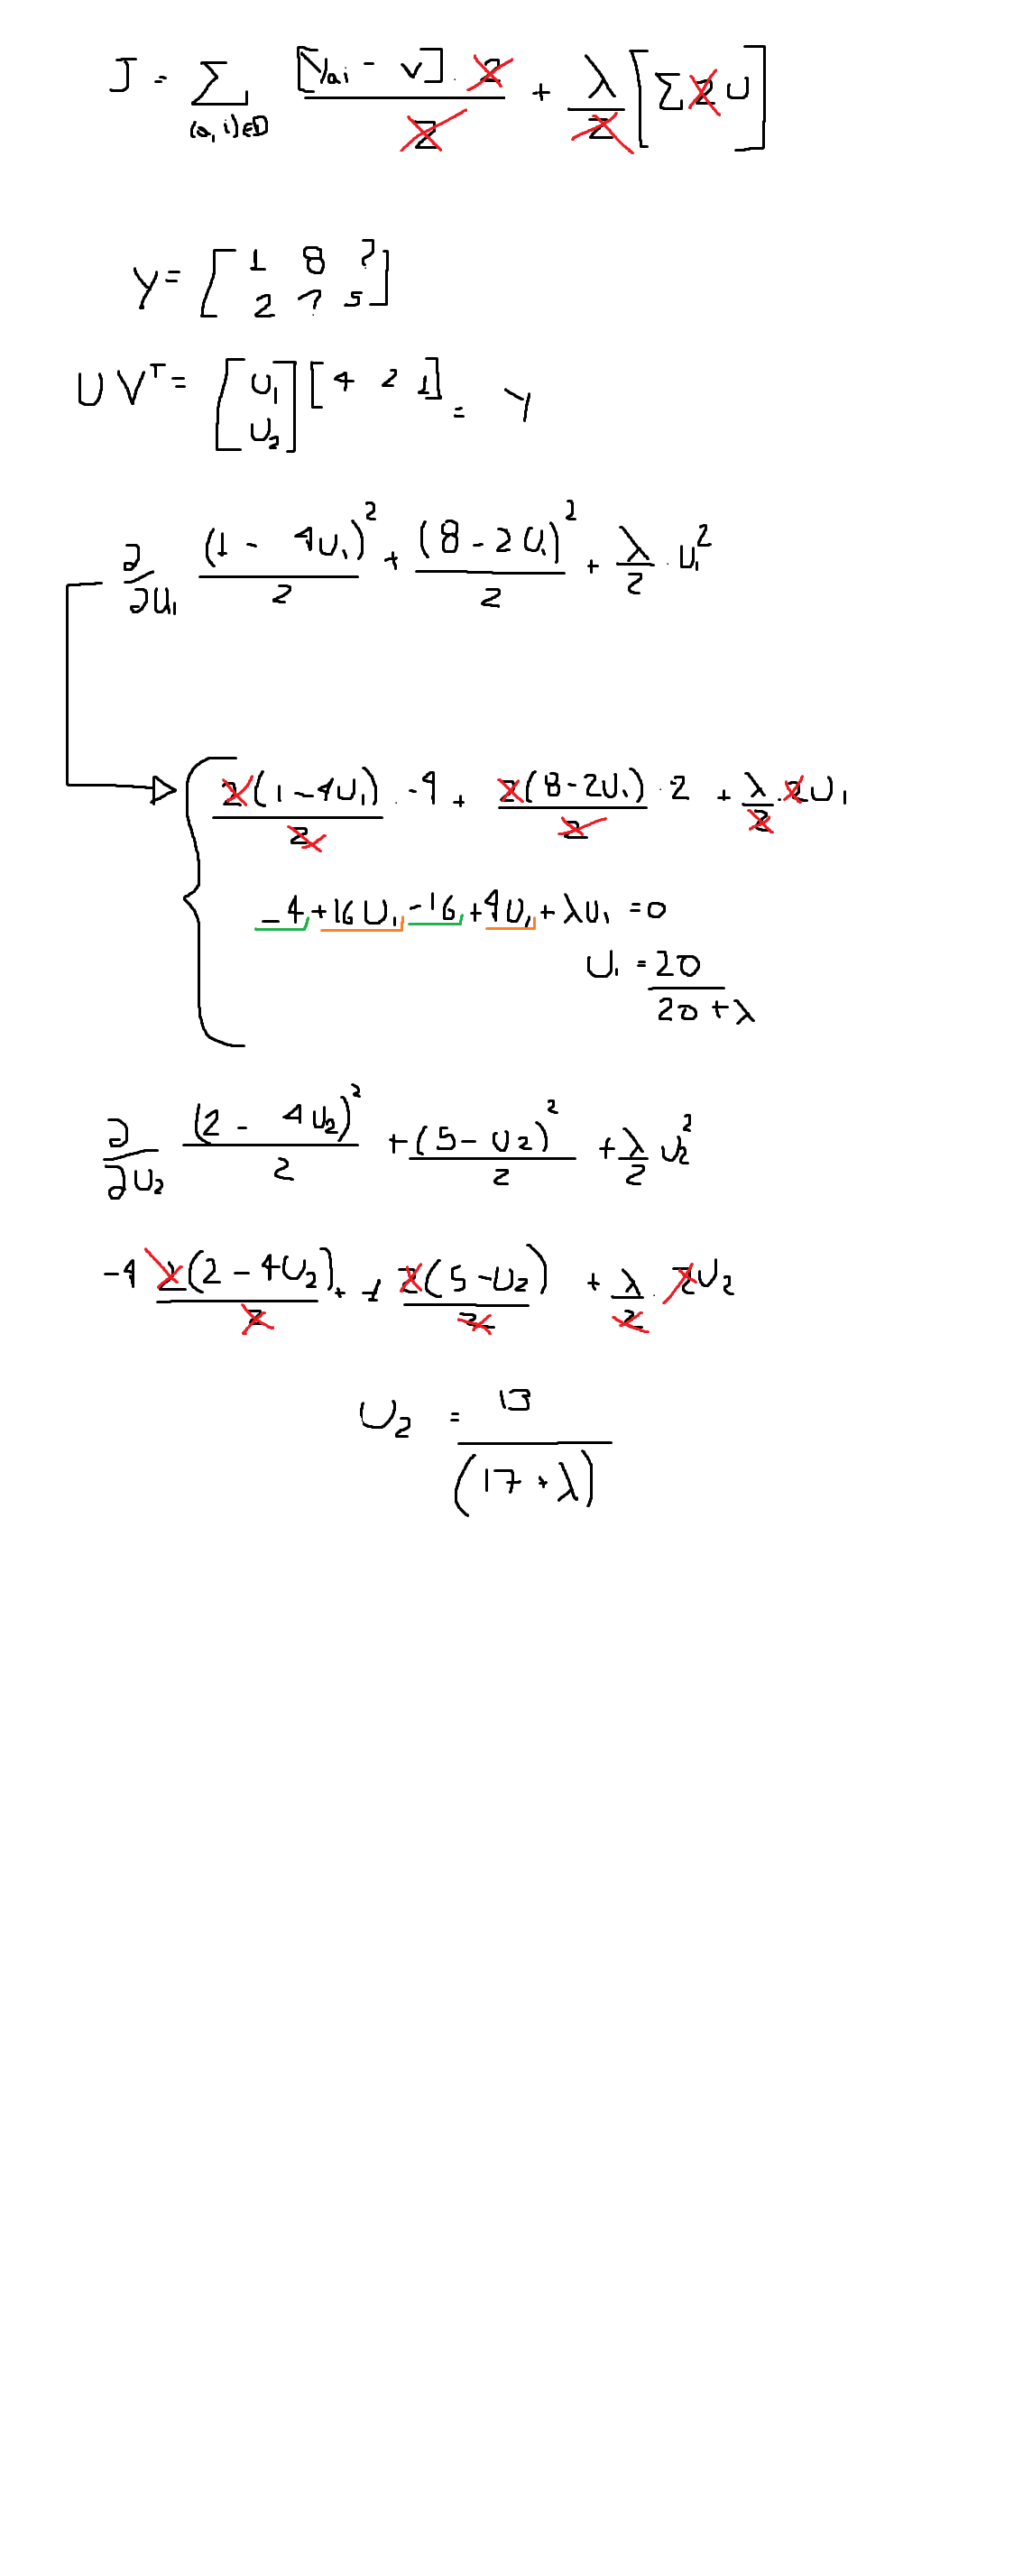 J = Σ [Yai - v] · 2 / 2 + λ/2 [Σ 2 U]
(a, i) ∈ D
Y = [ 1 8 ?
2 ? 5 ]
U Vᵀ = [ U₁
U₂ ] [ 4 2 1 ] = Y
∂/∂U₁ (1 - 4U₁)²/2 + (8 - 2U₁)²/2 + λ/2 · U₁²
2(1 - 4U₁)/2 · -4 + 2(8 - 2U₁)/2 · 2 + λ/2 · 2U₁
-4 + 16U₁ - 16 + 4U₁ + λU₁ = 0
U₁ = 20/(20 + λ)
∂/∂U₂ (2 - 4U₂)²/2 + (5 - U₂)²/2 + λ/2 U₂²
-4 2(2 - 4U₂)/2 + -1 2(5 - U₂)/2 + λ/2 · 2U₂
U₂ = 13/(17 + λ)